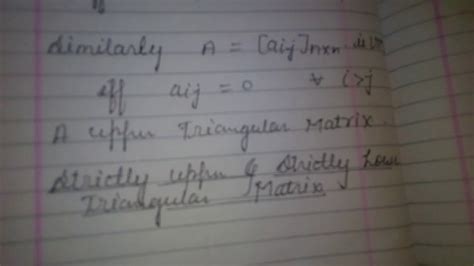 Similarly A = [aij]n×n is
iff aij = 0 ∀ i>j
A upper Triangular Matrix.
Strictly upper & Strictly Lower
Triangular Matrix